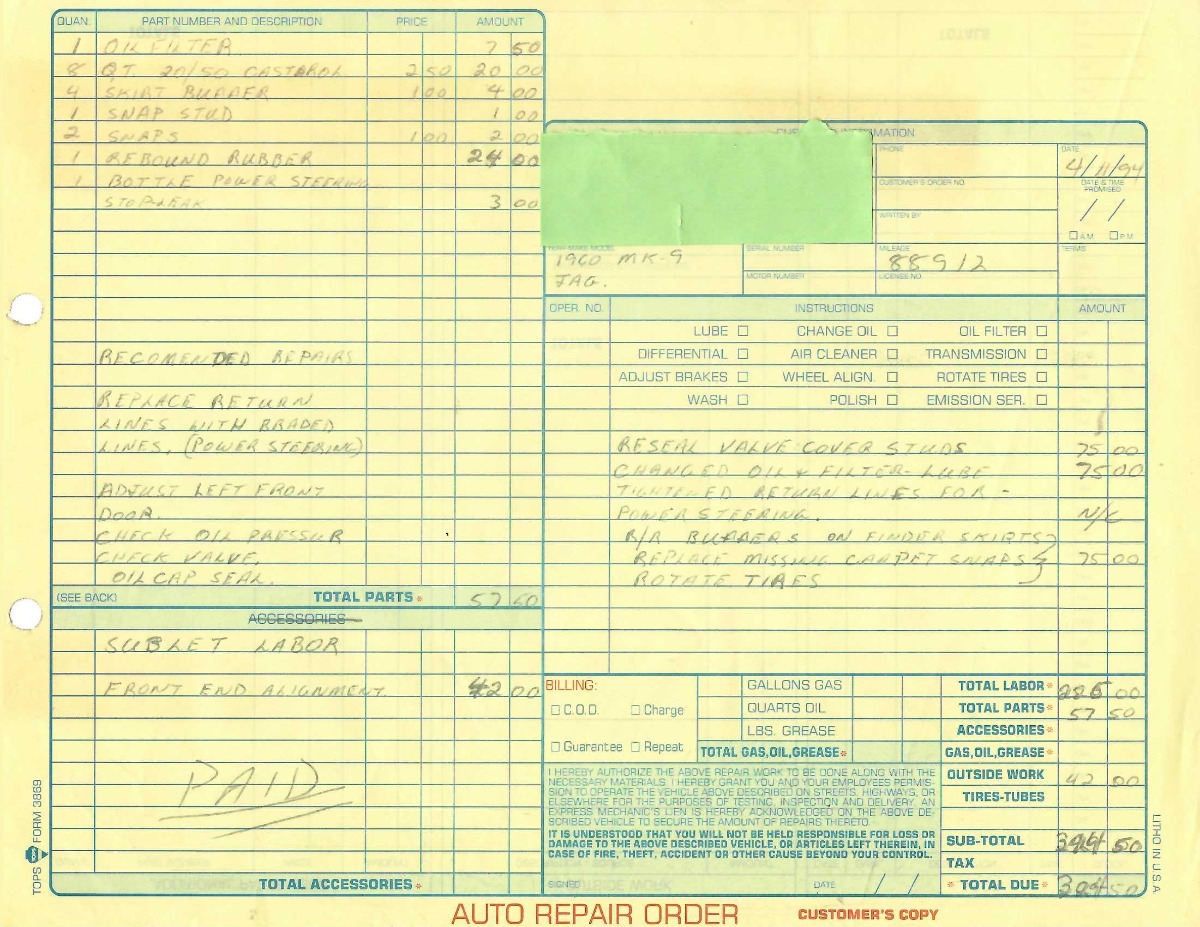 QUAN. PART NUMBER AND DESCRIPTION PRICE AMOUNT
1 OIL FILTER 7 50
8 QT. 20/50 CASTAROL 2 50 20 00
4 SKIRT BUMPER 1 00 4 00
1 SNAP STUD 1 00
2 SNAPS 1 00 2 00
1 REBOUND RUBBER 24 00
1 BOTTLE POWER STEERING
STOP-LEAK 3 00
RECOMENDED REPAIRS
REPLACE RETURN
LINES WITH BRADED
LINES, (POWER STEERING)
ADJUST LEFT FRONT
DOOR.
CHECK OIL PRESSUR
CHECK VALVE.
OIL CAP SEAL.
(SEE BACK) TOTAL PARTS* 57 50
ACCESSORIES
SUBLET LABOR
FRONT END ALIGNMENT 42 00
PAID
TOTAL ACCESSORIES*
TOPS FORM 3869
INFORMATION
PHONE
DATE
4/11/94
CUSTOMER'S ORDER NO.
DATE & TIME PROMISED
WRITTEN BY
/ /
☐ A.M. ☐ P.M.
SERIAL NUMBER
MILEAGE
TERMS
1960 MK-9
88912
JAG.
MOTOR NUMBER
LICENSE NO.
OPER. NO. INSTRUCTIONS AMOUNT
LUBE ☐ CHANGE OIL ☐ OIL FILTER ☐
DIFFERENTIAL ☐ AIR CLEANER ☐ TRANSMISSION ☐
ADJUST BRAKES ☐ WHEEL ALIGN. ☐ ROTATE TIRES ☐
WASH ☐ POLISH ☐ EMISSION SER. ☐
RESEAL VALVE COVER STUDS 75 00
CHANGED OIL & FILTER-LUBE 75 00
TIGHTENED RETURN LINES FOR -
POWER STEERING. N/C
R/R BUMPERS ON FINDER SKIRTS
REPLACE MISSING CARPET SNAPS 75 00
ROTATE TIRES
BILLING:
☐ C.O.D. ☐ Charge
☐ Guarantee ☐ Repeat
GALLONS GAS
QUARTS OIL
LBS. GREASE
TOTAL GAS,OIL,GREASE*
TOTAL LABOR* 225 00
TOTAL PARTS* 57 50
ACCESSORIES*
GAS,OIL,GREASE*
OUTSIDE WORK 42 00
TIRES-TUBES
SUB-TOTAL 50
TAX
* TOTAL DUE* 50
I HEREBY AUTHORIZE THE ABOVE REPAIR WORK TO BE DONE ALONG WITH THE
NECESSARY MATERIALS. I HEREBY GRANT YOU AND YOUR EMPLOYEES PERMIS-
SION TO OPERATE THE VEHICLE ABOVE DESCRIBED ON STREETS, HIGHWAYS, OR
ELSEWHERE FOR THE PURPOSES OF TESTING, INSPECTION AND DELIVERY. AN
EXPRESS MECHANIC'S LIEN IS HEREBY ACKNOWLEDGED ON THE ABOVE DE-
SCRIBED VEHICLE TO SECURE THE AMOUNT OF REPAIRS THERETO.
IT IS UNDERSTOOD THAT YOU WILL NOT BE HELD RESPONSIBLE FOR LOSS OR
DAMAGE TO THE ABOVE DESCRIBED VEHICLE, OR ARTICLES LEFT THEREIN, IN
CASE OF FIRE, THEFT, ACCIDENT OR OTHER CAUSE BEYOND YOUR CONTROL.
SIGNED DATE / /
LITHO IN U.S.A.
AUTO REPAIR ORDER CUSTOMER'S COPY